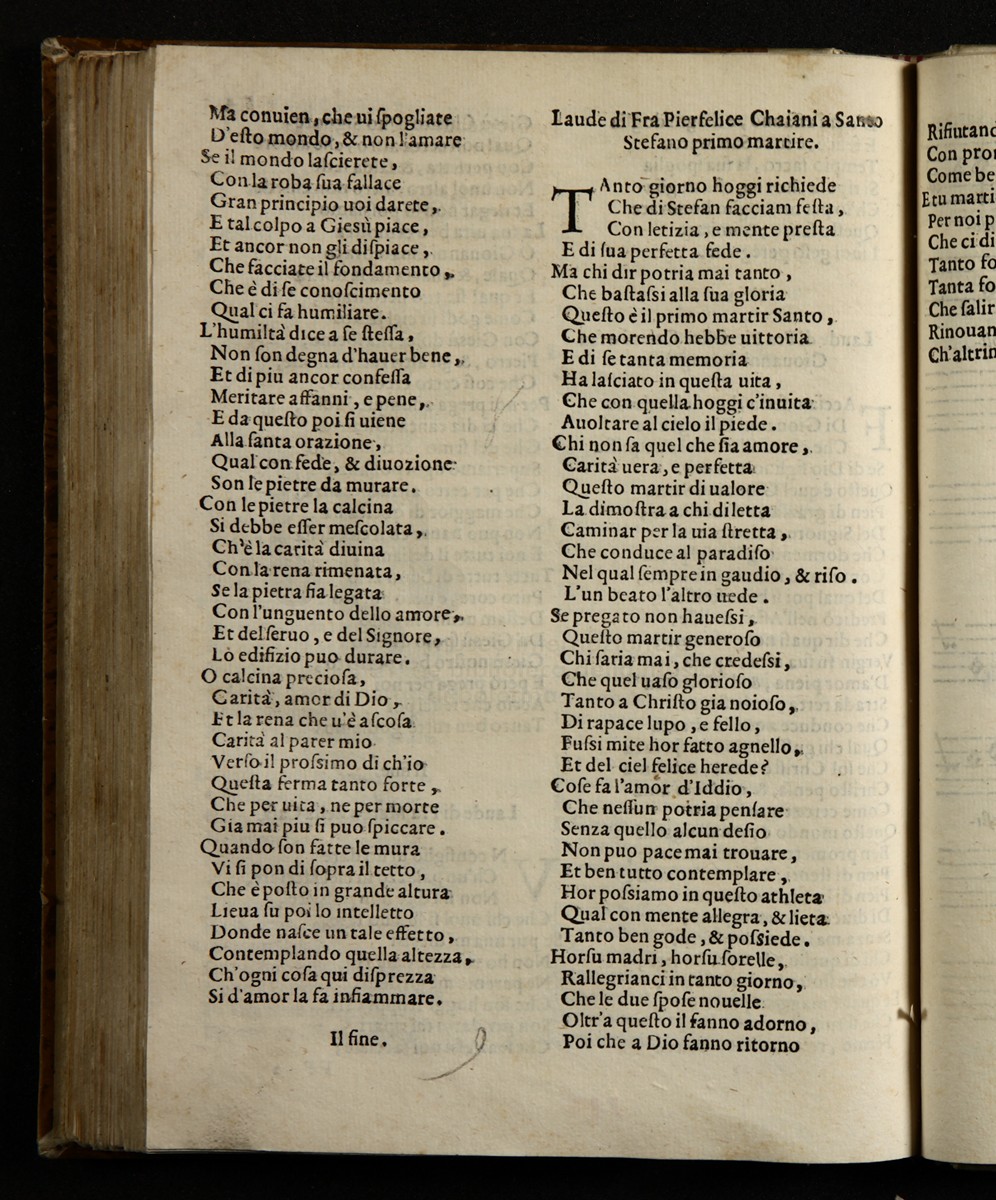 Ma conuien, che ui ſpogliate
D'eſto mondo, & non l'amare
Se il mondo laſcierete,
Con la roba ſua fallace
Gran principio uoi darete,
E tal colpo a Gieſù piace,
Et ancor non gli diſpiace,
Che facciate il fondamento,
Che è di ſe conoſcimento
Qual ci fa humiliare.
L'humiltà dice a ſe ſteſſa,
Non ſon degna d'hauer bene,
Et di piu ancor confeſſa
Meritare affanni, e pene,
E da queſto poi ſi uiene
Alla ſanta orazione,
Qual con fede, & diuozione
Son le pietre da murare.
Con le pietre la calcina
Si debbe eſſer meſcolata,
Ch'è la carità diuina
Con la rena rimenata,
Se la pietra ſia legata
Con l'unguento dello amore,
Et del ſeruo, e del Signore,
Lo edifizio puo durare.
O calcina precioſa,
Carità, amor di Dio,
Et la rena che u'è aſcoſa
Carità al parer mio
Verſo il proſsimo di ch'io
Queſta ferma tanto forte,
Che per uita, ne per morte
Gia mai piu ſi puo ſpiccare.
Quando ſon fatte le mura
Vi ſi pon di ſopra il tetto,
Che è poſto in grande altura
Lieua ſu poi lo intelletto
Donde naſce un tale effetto,
Contemplando quella altezza,
Ch'ogni coſa qui diſprezza
Si d'amor la fa infiammare.
Il fine.
Laude di Fra Pierfelice Chaiani a Santo
Stefano primo martire.
TAnto giorno hoggi richiede
Che di Stefan facciam feſta,
Con letizia, e mente preſta
E di ſua perfetta fede.
Ma chi dir potria mai tanto,
Che baſtaſsi alla ſua gloria
Queſto è il primo martir Santo,
Che morendo hebbe uittoria
E di ſe tanta memoria
Ha laſciato in queſta uita,
Che con quella hoggi c'inuita
A uoltare al cielo il piede.
Chi non ſa quel che ſia amore,
Carità uera, e perfetta
Queſto martir di ualore
La dimoſtra a chi diletta
Caminar per la uia ſtretta,
Che conduce al paradiſo
Nel qual ſempre in gaudio, & riſo.
L'un beato l'altro uede.
Se pregato non haueſsi,
Queſto martir generoſo
Chi ſaria mai, che credeſsi,
Che quel uaſo glorioſo
Tanto a Chriſto gia noioſo,
Di rapace lupo, e fello,
Fuſsi mite hor fatto agnello,
Et del ciel felice herede?
Coſe fa l'amor d'Iddio,
Che neſſun potria penſare
Senza quello alcun deſio
Non puo pace mai trouare,
Et ben tutto contemplare,
Hor poſsiamo in queſto athleta
Qual con mente allegra, & lieta
Tanto ben gode, & poſsiede.
Horſu madri, horſu ſorelle,
Rallegrianci in tanto giorno,
Che le due ſpoſe nouelle
Oltr'a queſto il fanno adorno,
Poi che a Dio fanno ritorno
Rifiutand
Con pro
Come be
E tu marti
Per noi p
Che ci di
Tanto fo
Tanta fo
Che ſalir
Rinouan
Ch'altrin